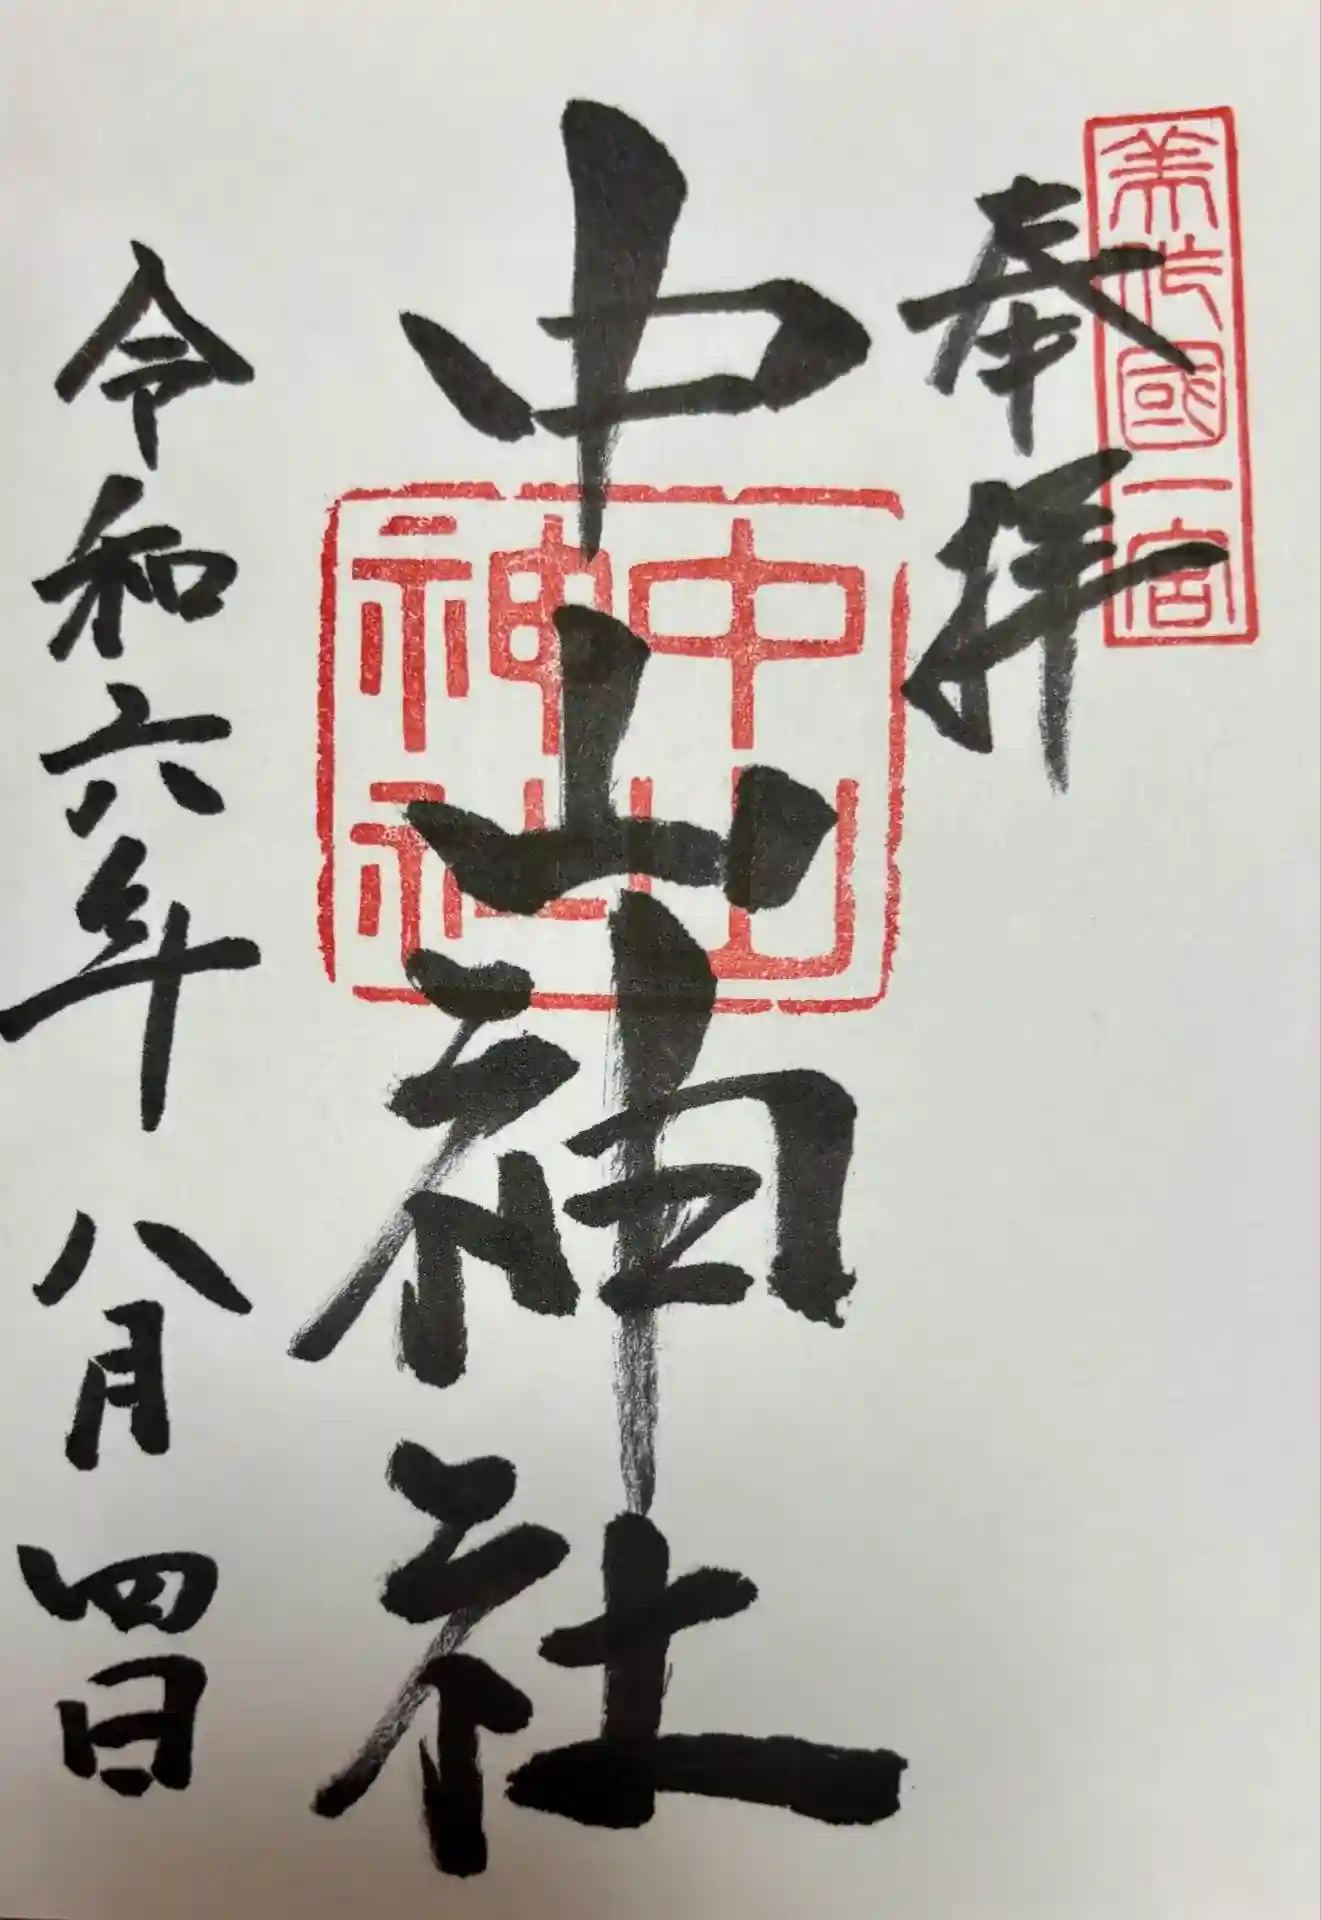 美作國一宮
奉拝
中山神社
中山
神社
令和六年八月四日